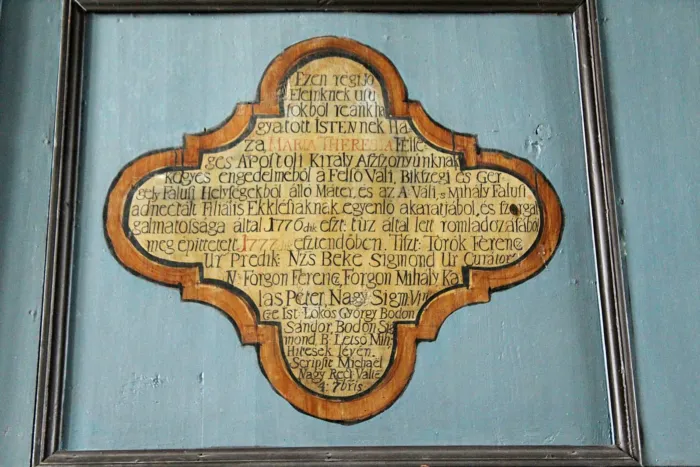 Ezen regi jo
Eleinknek usu
sokból reánk ha
gyatott ISTENnek Há
za MARIA THERESIA Felsé
ges Apostoli Király Aszszonyunknak
kegyes engedelméből a Felső Vali, Bikszegi és Ger
gely Falusi Helységekből álló Máter, és az A Vali, s Mihály Falusi
adnectált Filiális Ekklésiáknak egyenlő akaratjából, és szorgal
galmatossága által 1770dik eszt: tűz által lett romladozásából
meg épittetett 1777 esztendőben. Tiszt: Török Ferenc
Ur Prédik: Nzs Beke Sigmond Ur Curátor
N: Forgon Ferenc, Forgon Mihály Ka
las Péter, Nagy Sigm: Vin
Ist: Lőkös György Bodon
Sándor, Bodon Sig
mond B' Letső Mih
Hitesek lévén.
Scripsit Michael
Nagy Rect Valie
4: 7bris